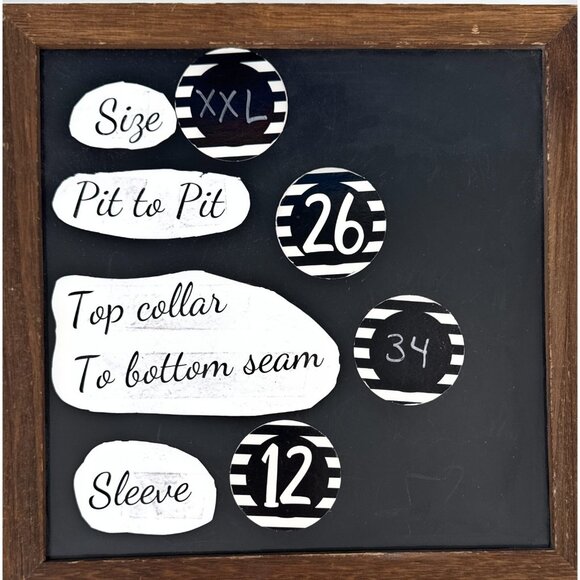 Size XXL
Pit to Pit 26
Top collar
To bottom seam 34
Sleeve 12